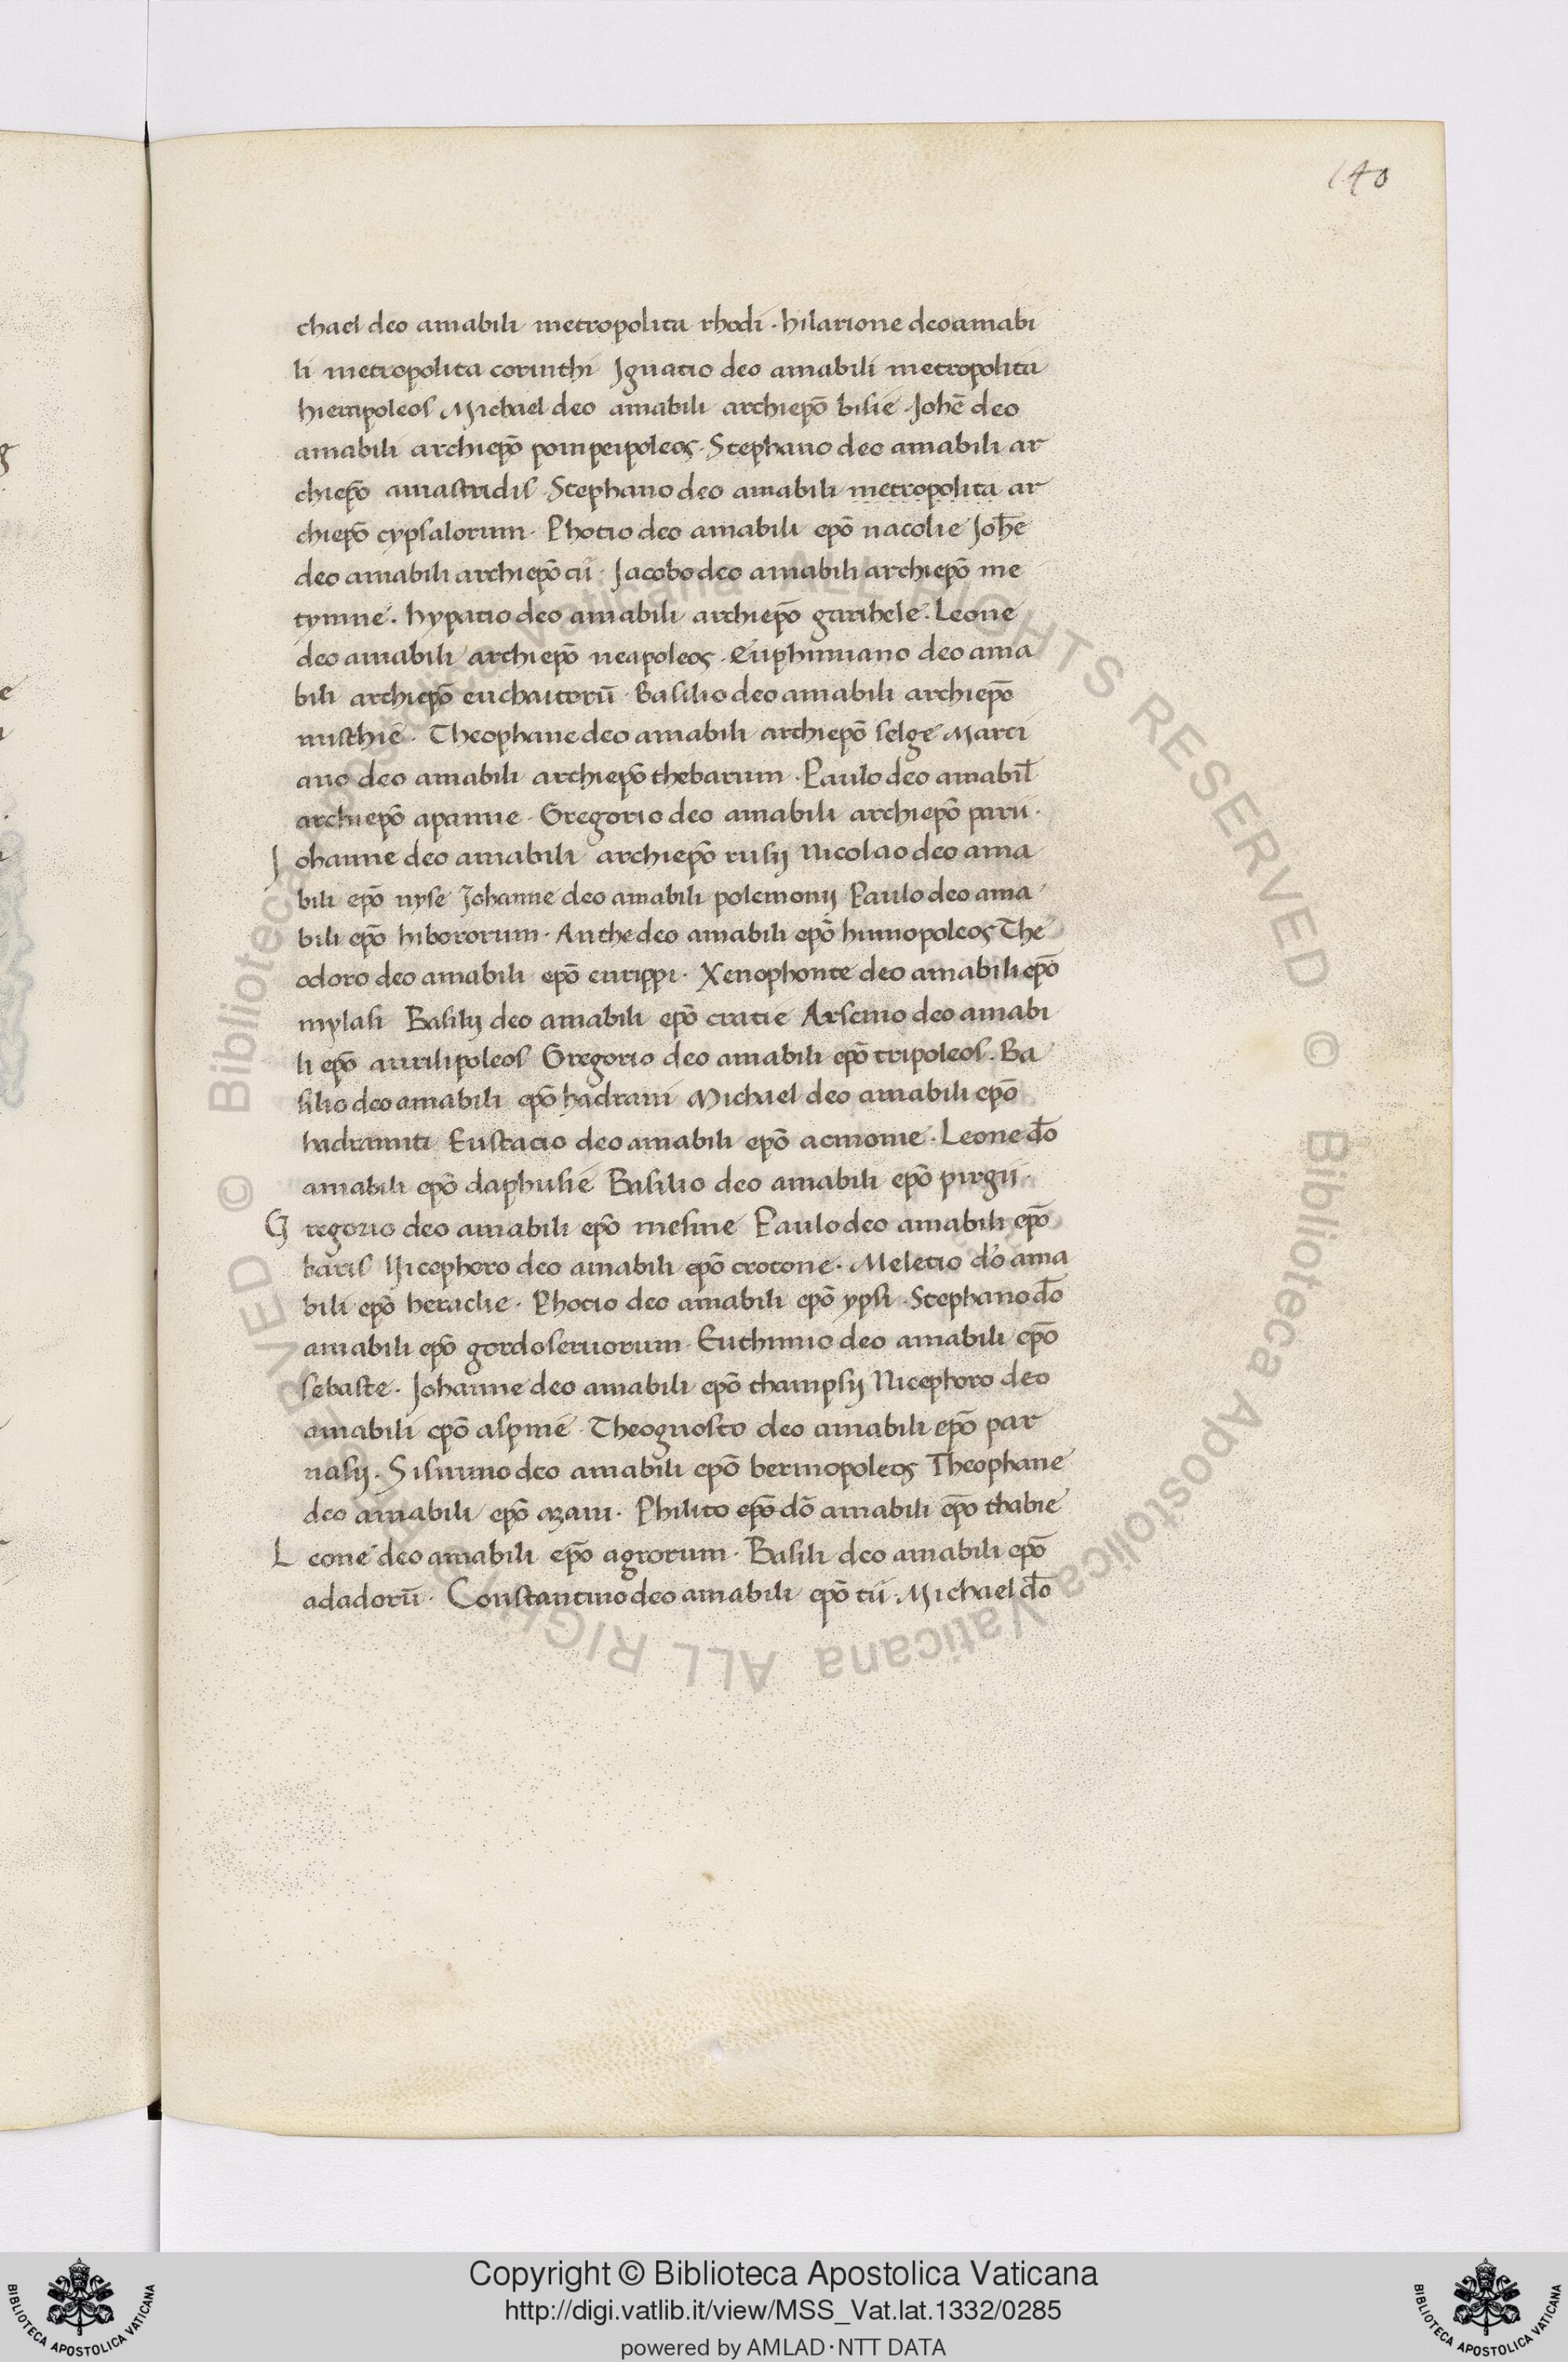 140
chael deo amabili metropolita rhodi · hilarione deo amabi
li metropolita corinthi Ignatio deo amabili metropolita
hierapoleos Michael deo amabili archiepō bisie · Johē deo
amabili archiepō pompeipoleos · Stephano deo amabili ar
chiepō amastridis · Stephano deo amabili metropolita ar
chiepō cypsalorum · Photio deo amabili epō nacolie Johē
deo amabili archiepō cii · Jacobo deo amabili archiepō me
tymne · hypatio deo amabili archiepō garihele · Leone
deo amabili archiepō neapoleos · euphimiano deo ama
bili archiepō euchaitorū · Basilio deo amabili archiepō
misthie · Theophane deo amabili archiepō selge Marci
ano deo amabili archiepō thebarum · Paulo deo amabil̄
archiepō apamie · Gregorio deo amabili archiepō parii ·
Johanne deo amabili archiepō rusij Nicolao deo ama
bili epō nyse Johanne deo amabili polemonij Paulo deo ama
bili epō hibororum · Anthe deo amabili epō himopoleos The
odoro deo amabili epō eurippi · Xenophonte deo amabili epō
mylasi Basilij deo amabili epō cratie Arsenio deo amabi
li epō aurilipoleos Gregorio deo amabili epō tripoleos · Ba
silio deo amabili epō hadrani Michael deo amabili epō
hadramiti Eustatio deo amabili epō acmonie · Leone dō
amabili epō daphusie Basilio deo amabili epō pirgii ·
Gregorio deo amabili epō mesine Paulo deo amabili epō
baris Nicephoro deo amabili epō crotone · Meletio dō ama
bili epō heraclie · Photio deo amabili epō ypsi · Stephano dō
amabili epō gordoseruorum · Euthimio deo amabili epō
sebaste · Johanne deo amabili epō thampsij Nicephoro deo
amabili epō aspine · Theognosto deo amabili epō par
nasij · Sisinnio deo amabili epō bermopoleos Theophane
deo amabili epō azani · Philito epō dō amabili epō thabie
Leone deo amabili epō agrorum · Basili deo amabili epō
adadorū · Constantino deo amabili epō tii · Michael dō
Copyright © Biblioteca Apostolica Vaticana
http://digi.vatlib.it/view/MSS_Vat.lat.1332/0285
powered by AMLAD·NTT DATA